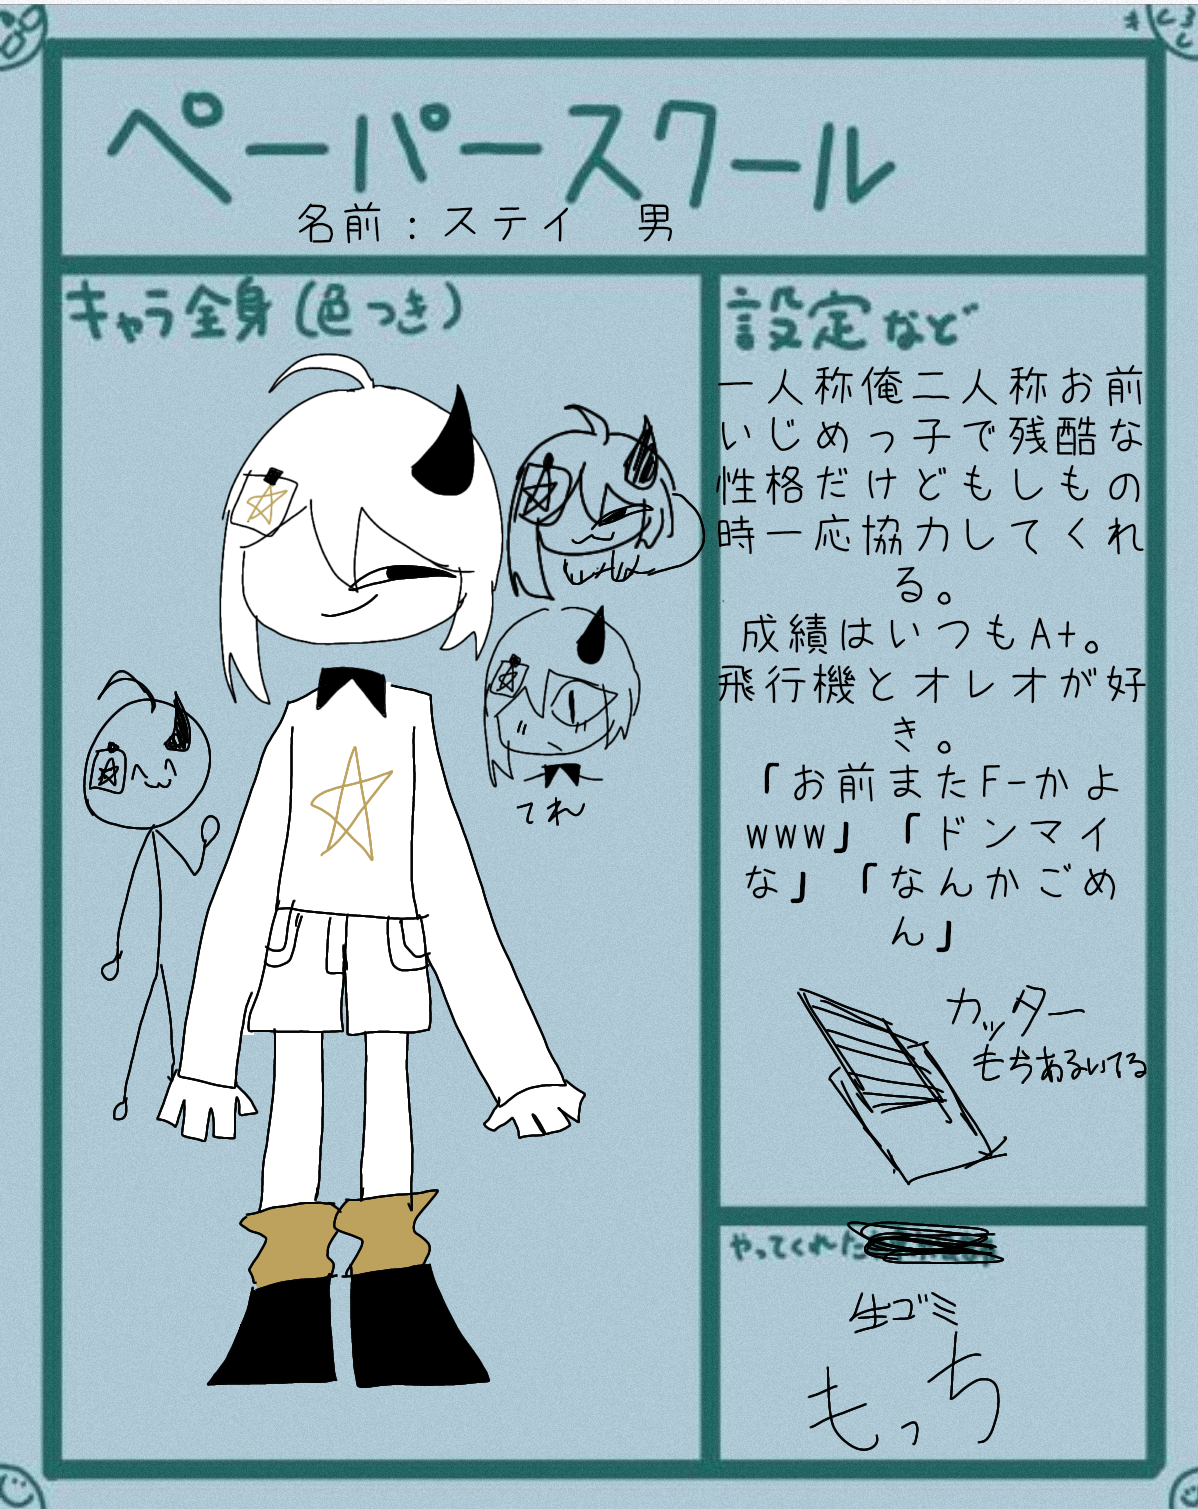 ペーパースクール
名前：ステイ　男
キャラ全身(色つき)
てれ
設定など
一人称俺二人称お前
いじめっ子で残酷な
性格だけどもしもの
時一応協力してくれ
る。
成績はいつもA+。
飛行機とオレオが好
き。
「お前またF-かよ
www」「ドンマイ
な」「なんかごめ
ん」
カッター
もちあるいてる
やってくれた
生ゴミ
もっち